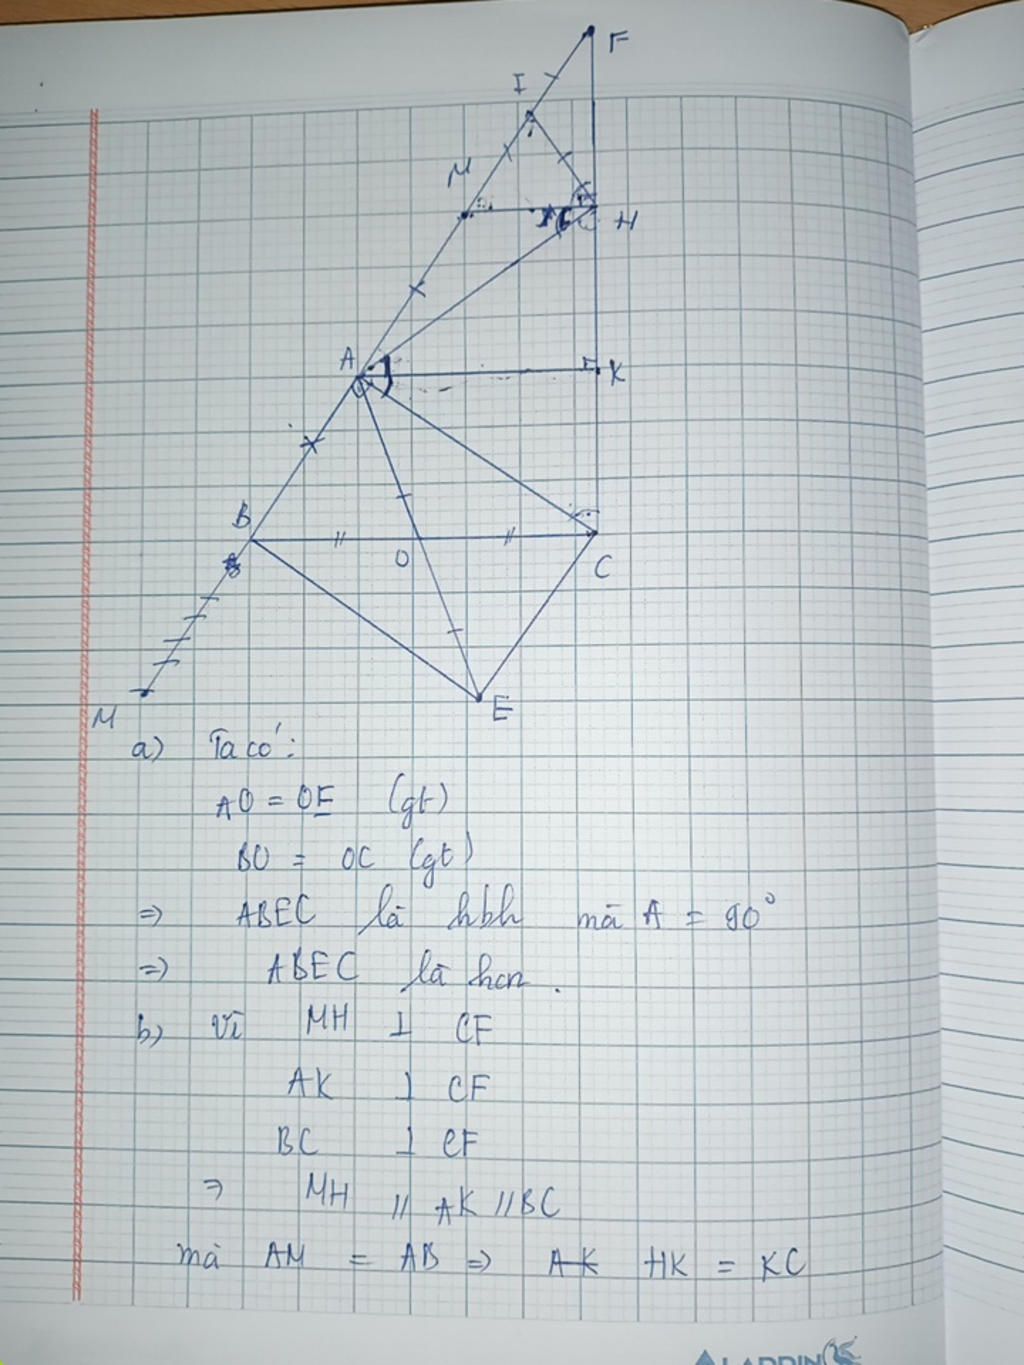 F
I
M
H
A
K
B
O
C
M
E
a) Ta có:
AO = OE (gt)
BO = OC (gt)
=> ABEC là hbh mà A = 90°
=> ABEC là hcn.
b) Vì MH ⊥ CF
AK ⊥ CF
BC ⊥ CF
=> MH // AK // BC
mà AM = AB => AK HK = KC
ALADDIN